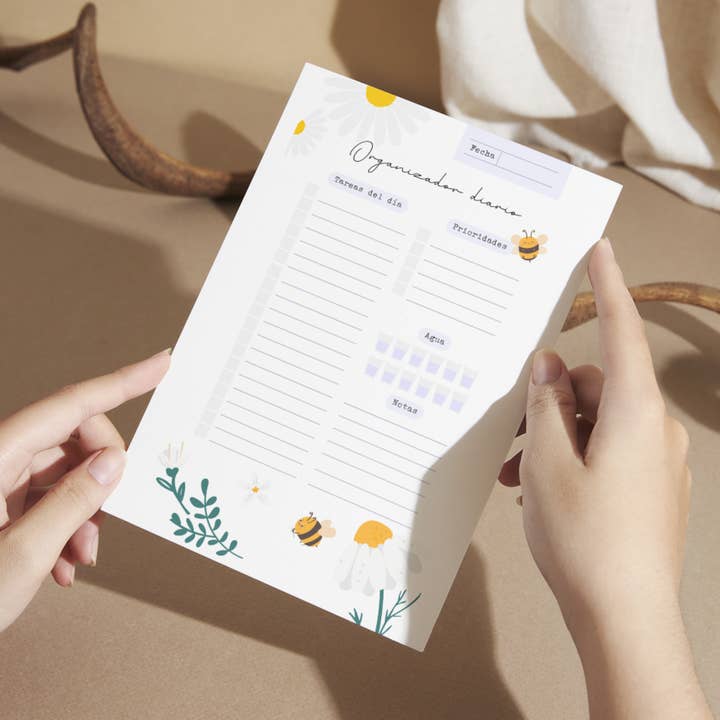 Fecha
Organizador diario
Tareas del día
Prioridades
Agua
Notas